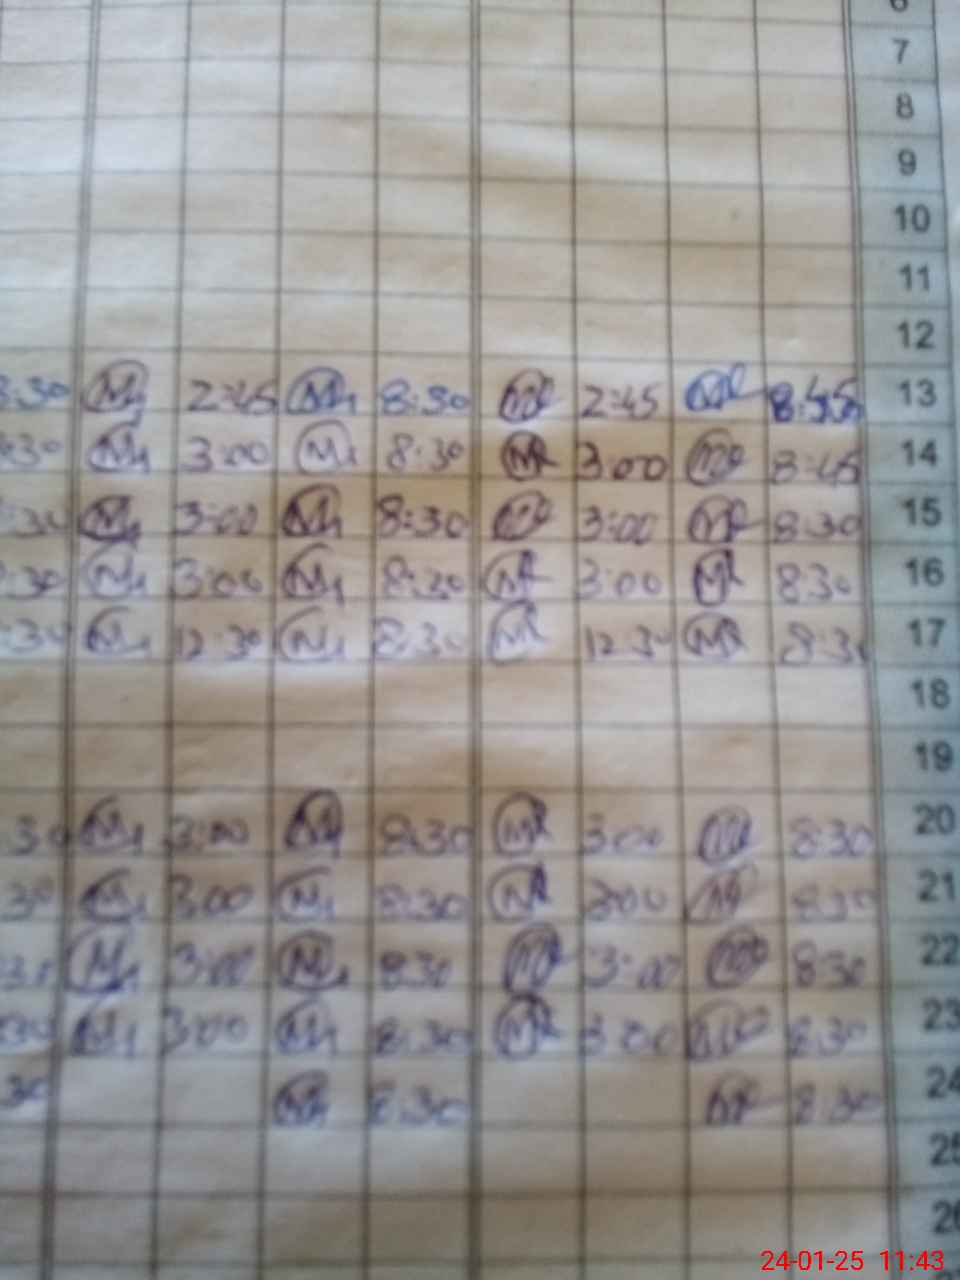 6
7
8
9
10
11
12
8:30 M1 2:45 M1 8:30 M 2:45 M 8:45 13
:30 M1 3:00 M1 8:30 M 3:00 M 8:45 14
:30 M1 3:00 M1 8:30 M 3:00 M 8:30 15
:30 M1 3:00 M1 8:30 M 3:00 M 8:30 16
:30 M1 12:30 M1 8:30 M 12:30 M 8:30 17
18
19
30 M1 3:00 M1 8:30 M 3:00 M 8:30 20
30 M1 3:00 M1 8:30 M 3:00 M 8:30 21
30 M1 3:00 M1 830 M 3:00 M 830 22
30 M1 3:00 M1 8:30 M 3:00 M 8:30 23
30 M1 8:30 M 8:30 24
25
26
24-01-25 11:43